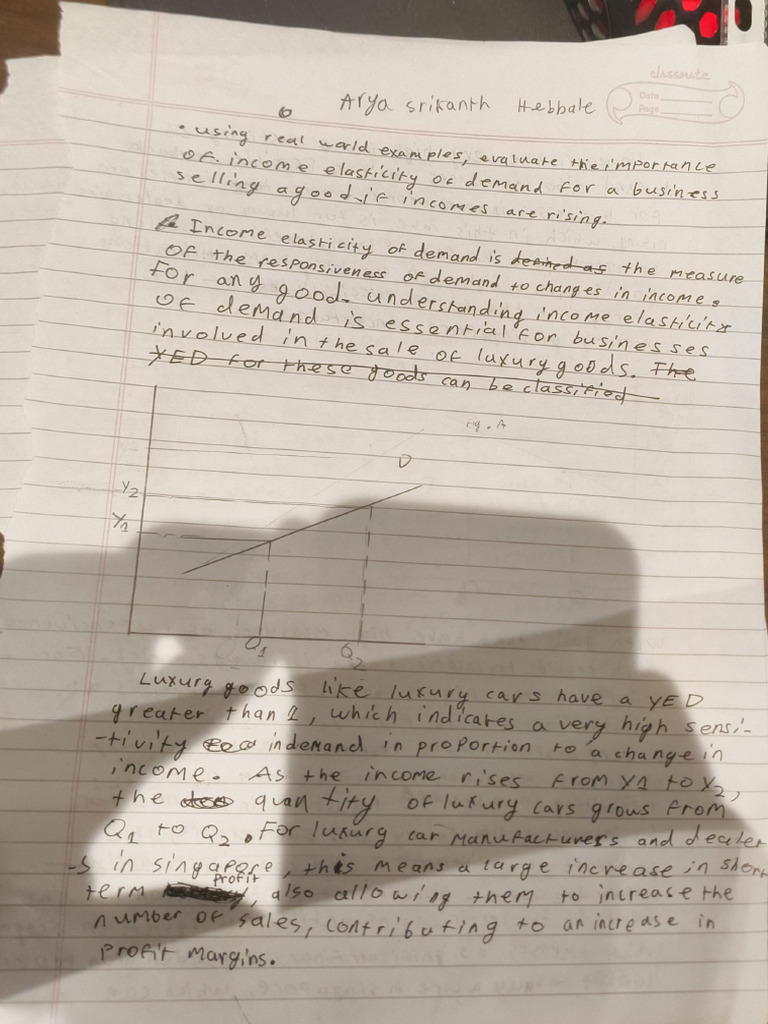 classmate
Date
Page
Arya srikanth Hebbale
• using real world examples, evaluate the importance
of income elasticity of demand for a business
selling a good if incomes are rising.
Income elasticity of demand is defined as the measure
of the responsiveness of demand to changes in income.
for any good. understanding income elasticity
of demand is essential for businesses
involved in the sale of luxury goods. The
YED for these goods can be classified
Fig. A
D
Y2
Y1
Q1
Q2
Luxury goods like luxury cars have a YED
greater than 1, which indicates a very high sensi-
-tivity in demand in proportion to a change in
income. As the income rises from Y1 to Y2,
the quantity of luxury cars grows from
Q1 to Q2. For luxury car manufacturers and dealer
-s in singapore, this means a large increase in short
term profit, also allowing them to increase the
number of sales, contributing to an increase in
profit margins.